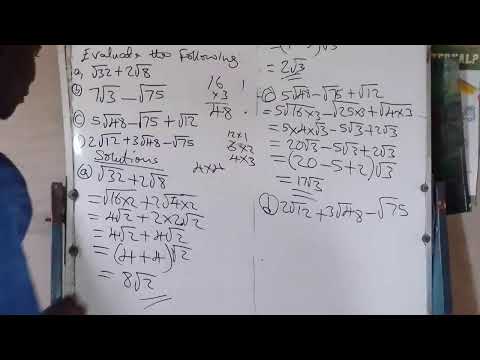 Evaluate the following
a, √32 + 2√8
b) 7√3 - √75
c) 5√48 - √75 + √12
d) 2√12 + 3√48 - √75
16
×3
48
12×1
3×2
4×3
4×4
Solutions
a) √32 + 2√8
= √16×2 + 2√4×2
= 4√2 + 2×2√2
= 4√2 + 4√2
= (4+4)√2
= 8√2
= 2√3
c) 5√48 - √75 + √12
= 5√16×3 - √25×3 + √4×3
= 5×4×√3 - 5√3 + 2√3
= 20√3 - 5√3 + 2√3
= (20-5+2)√3
= 17√3
d) 2√12 + 3√48 - √75